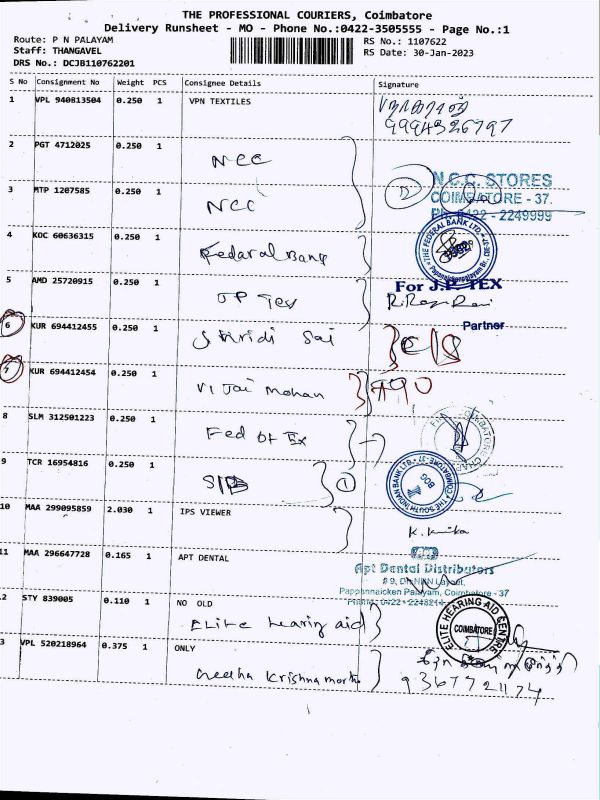 THE PROFESSIONAL COURIERS, Coimbatore
Delivery Runsheet - MO - Phone No.:0422-3505555 - Page No.:1
Route: P N PALAYAM
Staff: THANGAVEL
DRS No.: DCJB110762201
RS No.: 1107622
RS Date: 30-Jan-2023
S No Consignment No Weight PCS Consignee Details Signature
1 VPL 940813504 0.250 1 VPN TEXTILES
9994326797
2 PGT 4712025 0.250 1 NCC
3 MTP 1207585 0.250 1 NCC
N.C.C. STORES
COIMBATORE - 37.
PH: 0422 - 2249999
4 KOC 60636315 0.250 1 Fedaral Bank
THE FEDERAL BANK LTD.
5 AMD 25720915 0.250 1 JP Tex
For J.P. TEX
Partner
6 KUR 694412455 0.250 1 Shridi Sai
7 KUR 694412454 0.250 1 Vijai mohan
8 SLM 312501223 0.250 1 Fed of Ex
9 TCR 16954816 0.250 1 SIB
1
THE SOUTH INDIAN BANK LTD. COIMBATORE -37
10 MAA 299095859 2.030 1 IPS VIEWER
11 MAA 296647728 0.165 1 APT DENTAL
Apt Dental Distributors
Pappanaicken Palayam, Coimbatore - 37
2 STY 839005 0.110 1 NO OLD
Elite hearing aid
ELITE HEARING AID CENTRE
COIMBATORE
3 VPL 520218964 0.375 1 ONLY
Geetha Krishnamorthi
9367721174